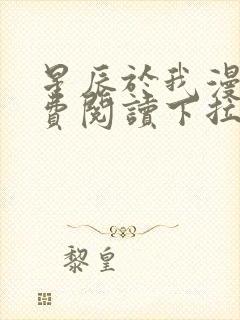 星辰於我漫
費閱讀下拉
黎皇